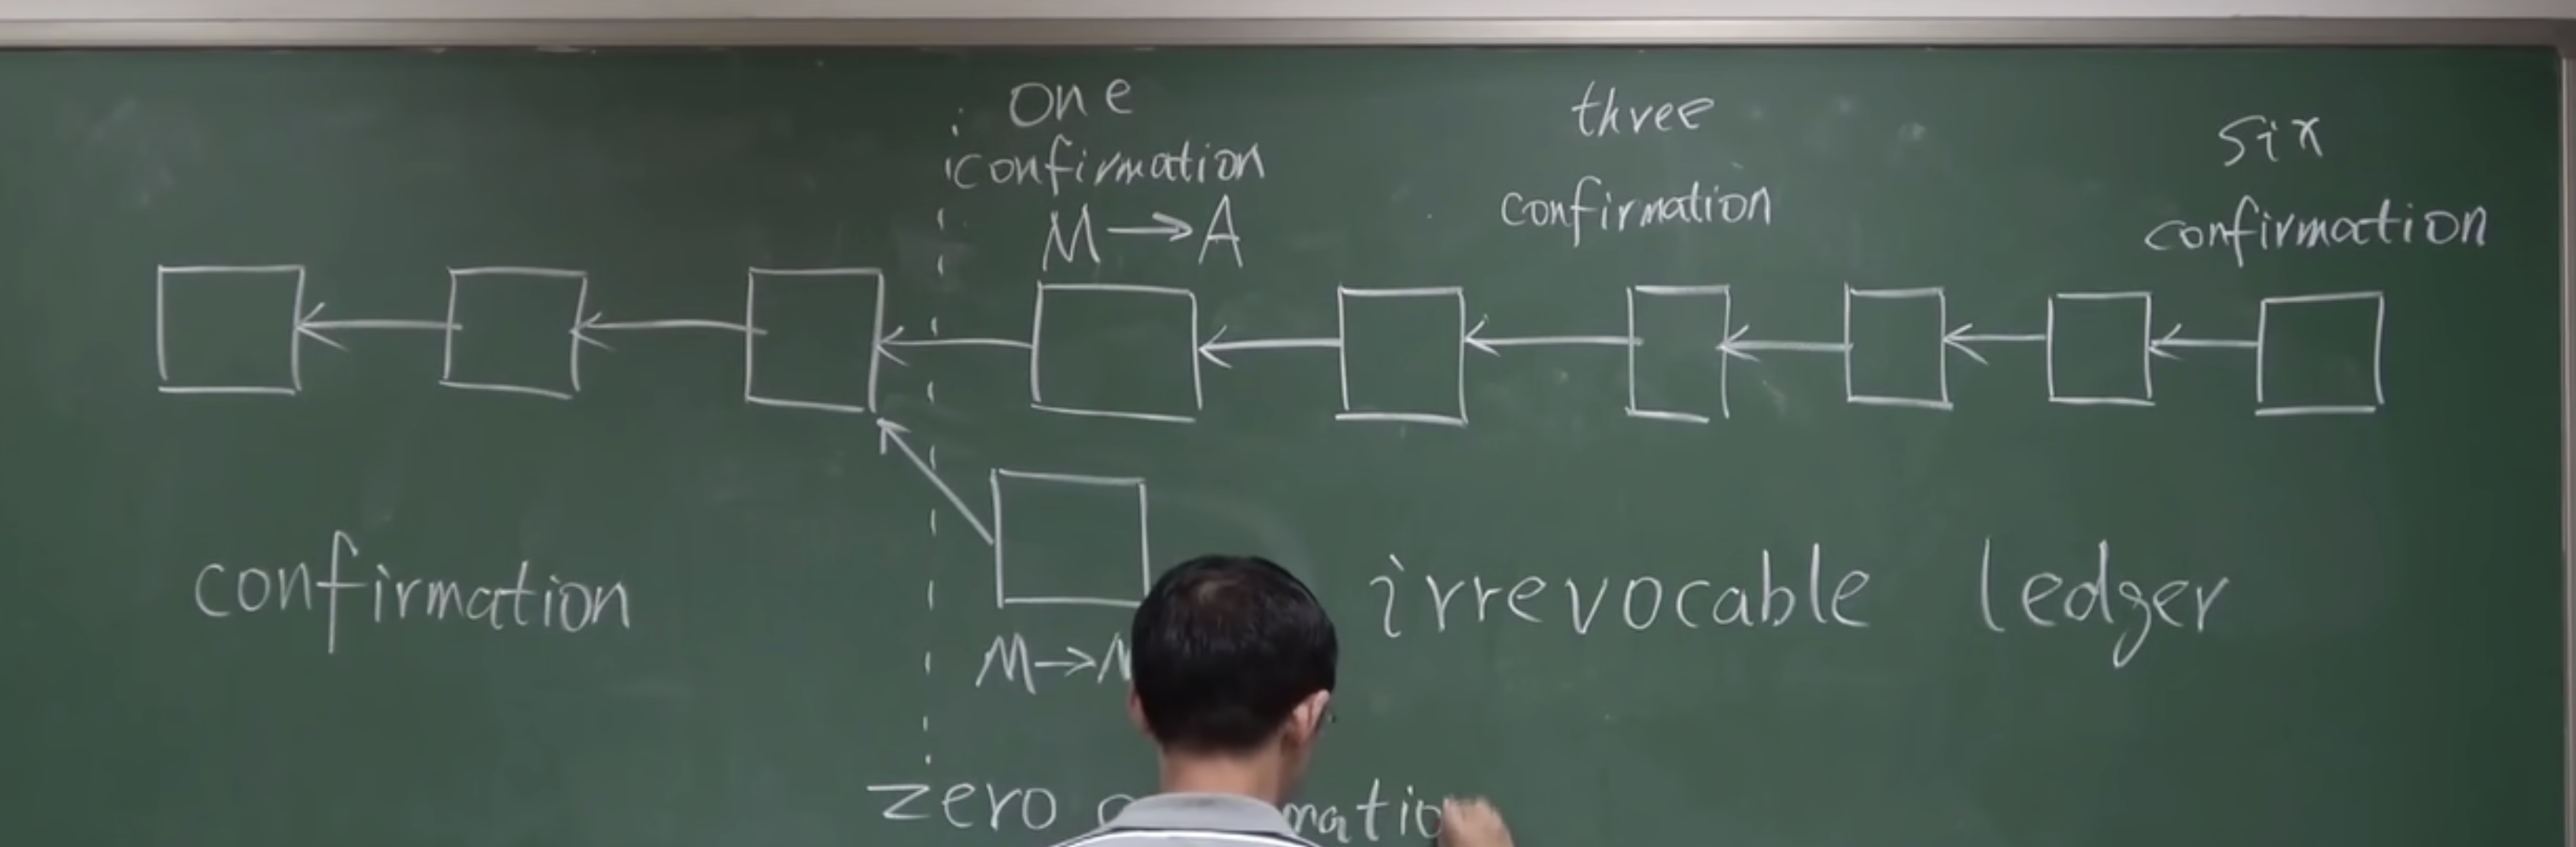 one
confirmation
M → A
three
confirmation
six
confirmation
confirmation
irrevocable ledger
M →
zero